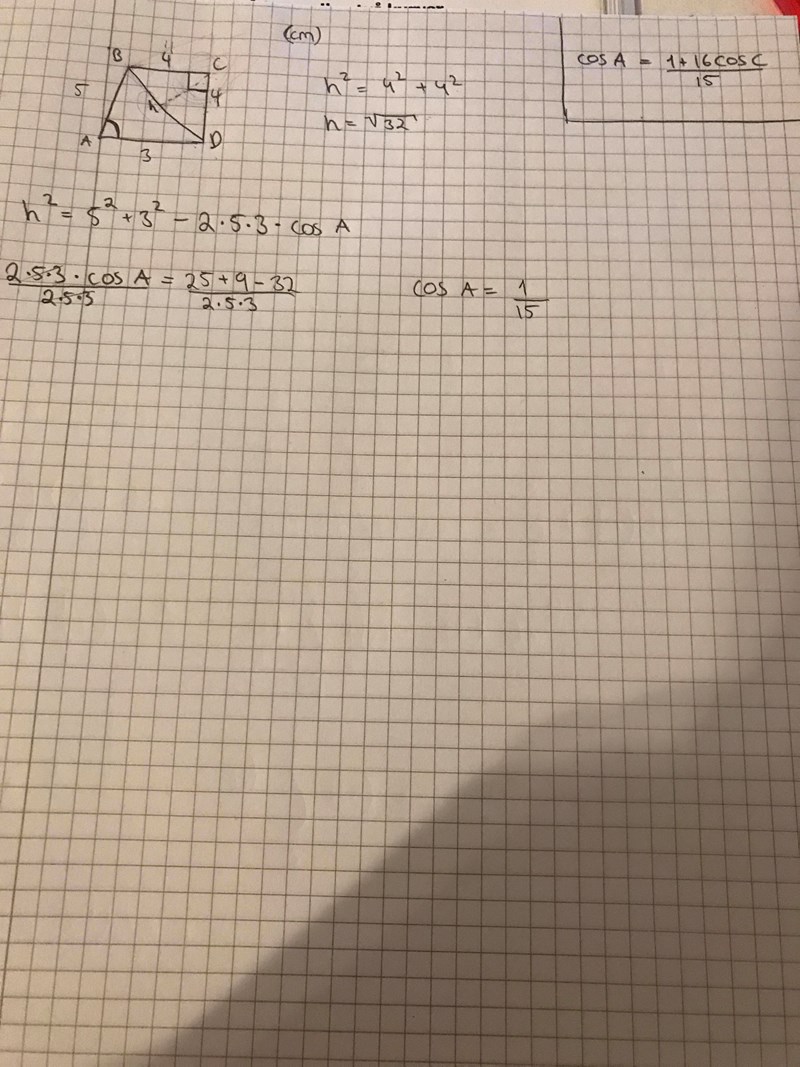 (cm)
B 4 C
5 h 4
A 3 D
h² = 4² + 4²
h = √32
cos A = (1+16cos C)/15
h² = 5² + 3² - 2·5·3 · cos A
(2·5·3 · cos A)/(2·5·3) = (25+9-32)/(2·5·3)
cos A = 1/15